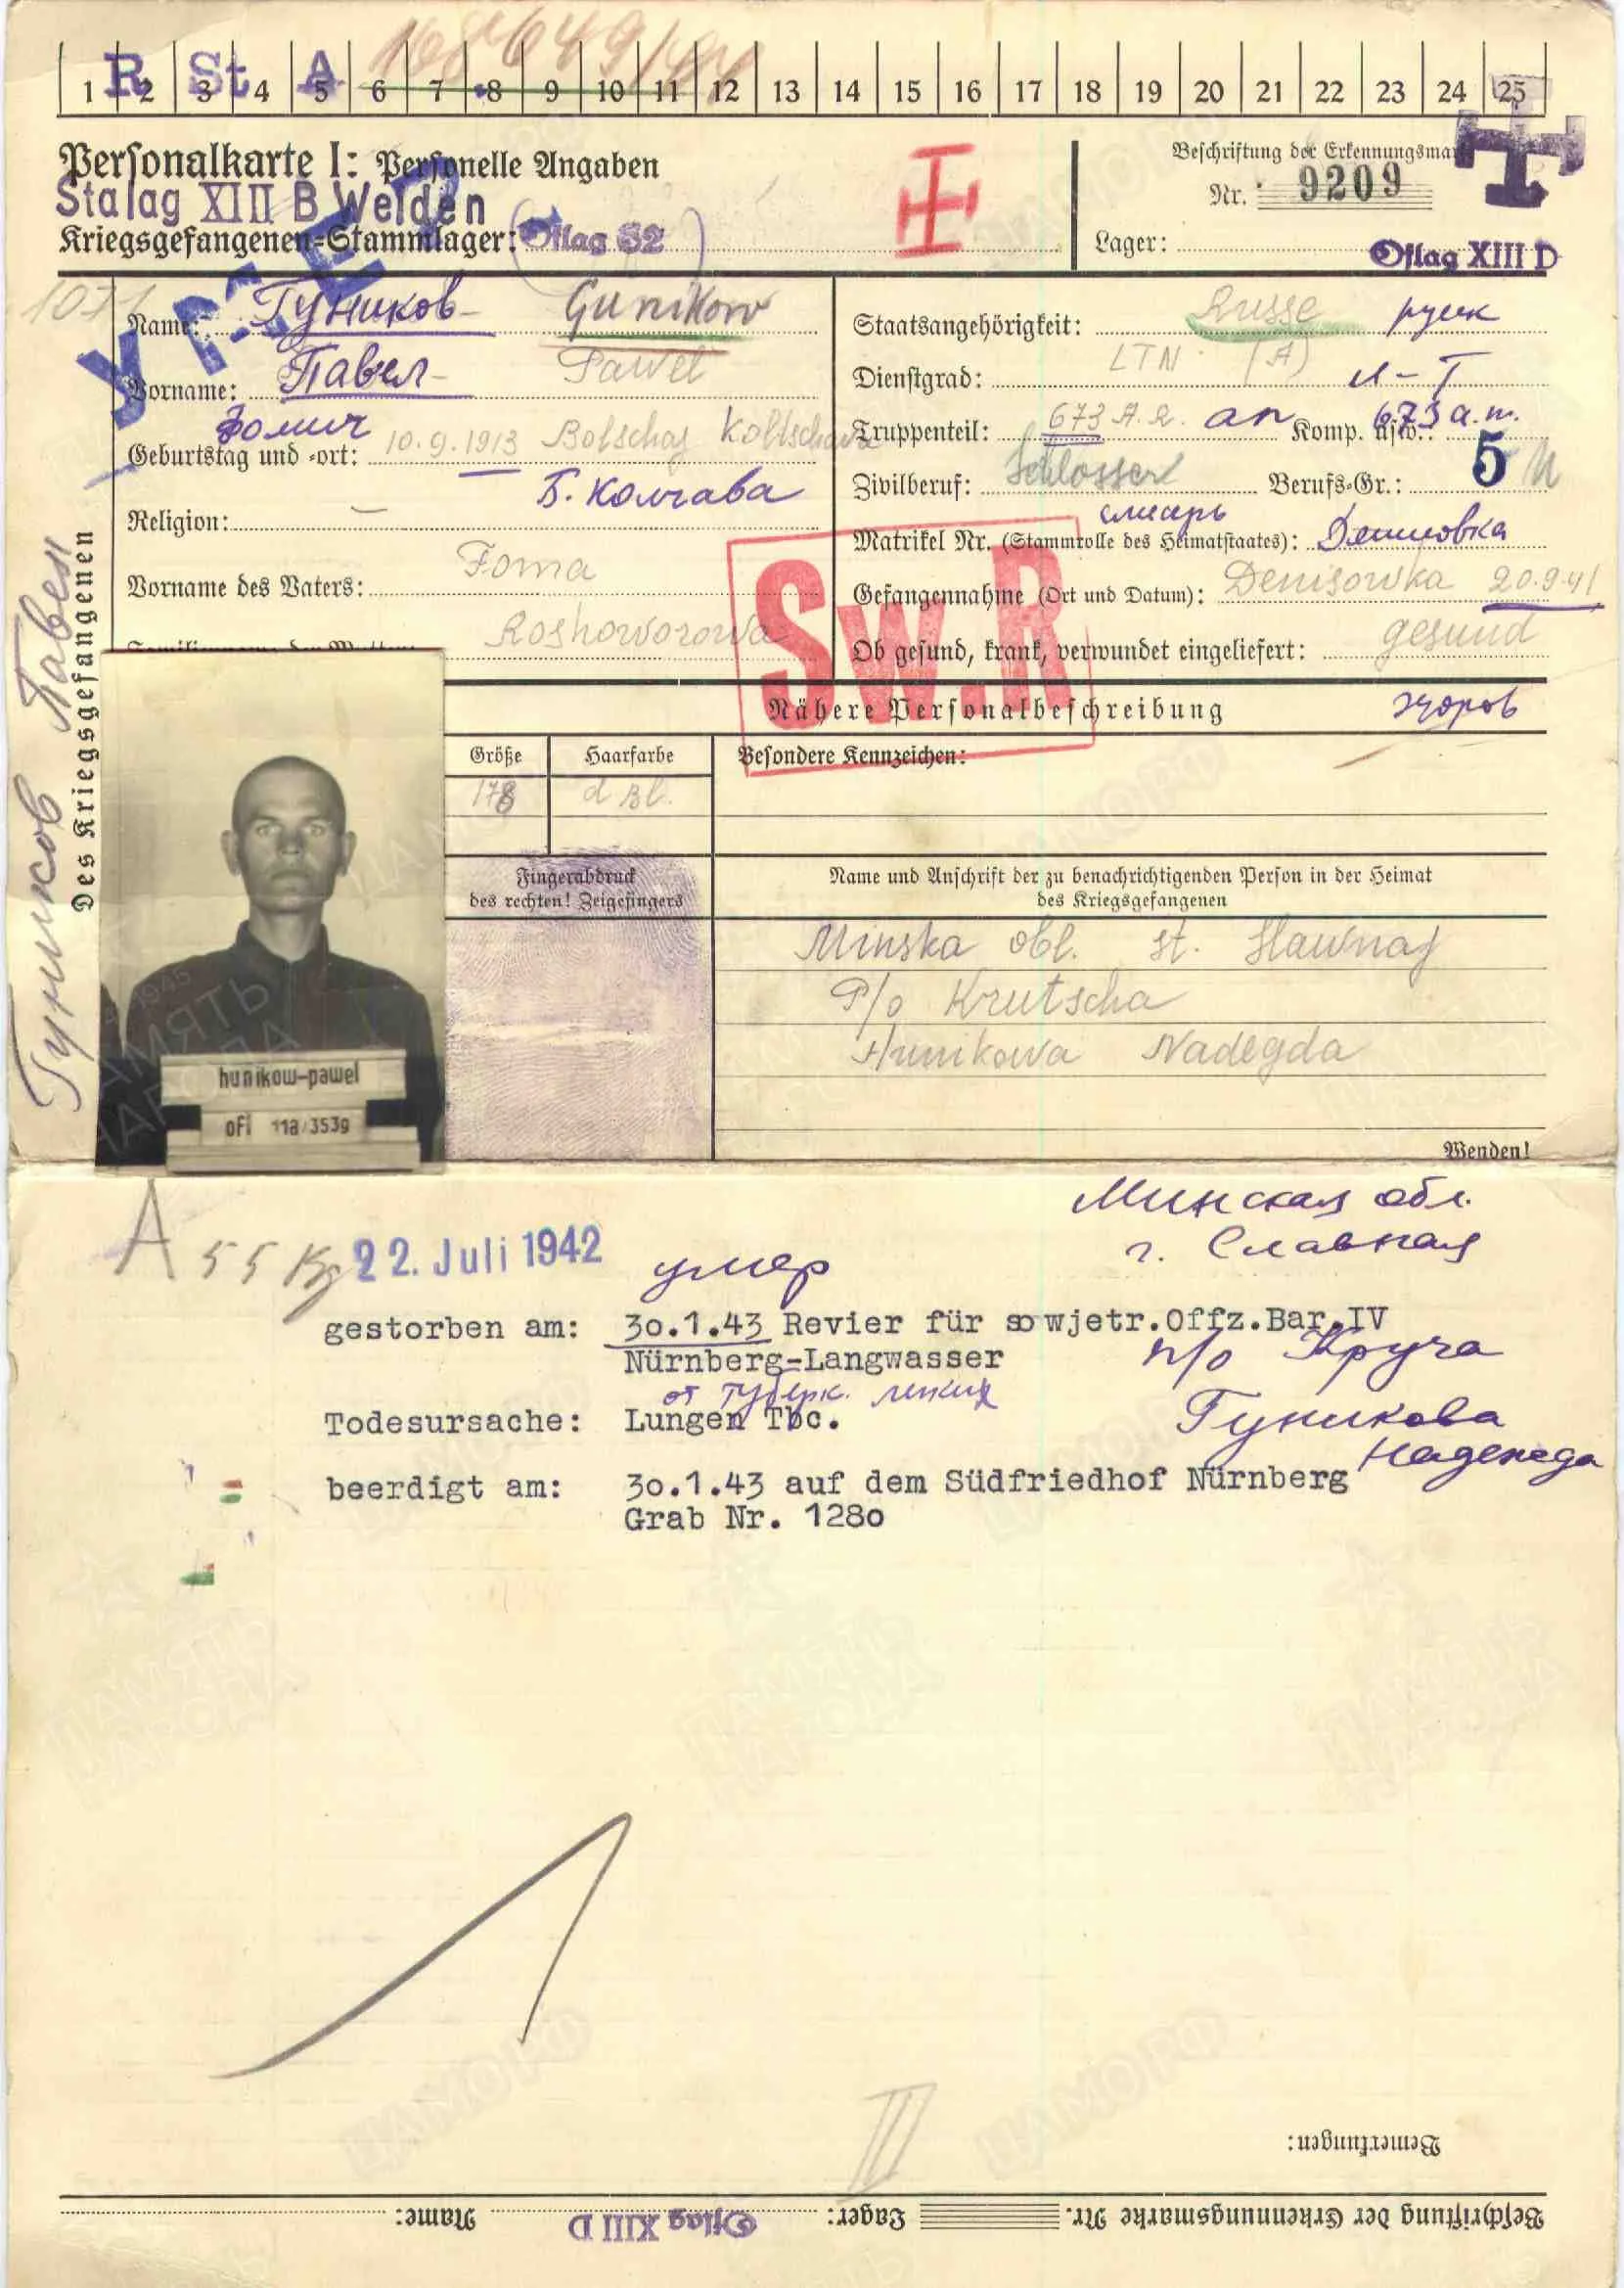 R St A 168649/94
1 2 3 4 5 6 7 8 9 10 11 12 13 14 15 16 17 18 19 20 21 22 23 24 25
Personalkarte I: Personelle Angaben
Stalag XIII B Weiden
Kriegsgefangenen-Stammlager: Oflag 62
Beschriftung der Erkennungsmarke
Nr. 9209
Lager: Oflag XIII D
УМЕР
Des Kriegsgefangenen
Гуников Павел
Name: Гуников Gunikow
Vorname: Павел Pawel
Фомич
Geburtstag und -ort: 10.9.1913 Bolschaj Koltschawa
Б. Колчава
Religion: —
Vorname des Vaters: Foma
Roshoworowa
Staatsangehörigkeit: Russe русск
Dienstgrad: LTN (A) л-т
Truppenteil: 673 A.R. ап Komp. usw.: 673 а.п.
Zivilberuf: Schlosser Berufs-Gr.: 5
слесарь
Matrikel Nr. (Stammrolle des Heimatstaates): Денисовка
Gefangennahme (Ort und Datum): Denisowka 20.9.41
Ob gesund, krank, verwundet eingeliefert: gesund
здоров
Sw.R
Nähere Personalbeschreibung
Größe Haarfarbe Besondere Kennzeichen:
178 d Bl.
Fingerabdruck
des rechten! Zeigefingers
Name und Anschrift der zu benachrichtigenden Person in der Heimat
des Kriegsgefangenen
Minska obl. st. Slawnaj
P/o Krutscha
Hunikowa Nadegda
hunikow-pawel
ofl 11a/3539
Wenden!
Минская обл.
г. Славная
п/о Круча
Гуникова
Надежда
A 55 Kg 22. Juli 1942
умер
gestorben am: 30.1.43 Revier für sowjetr.Offz.Bar.IV
Nürnberg-Langwasser
от туберк. легких
Todesursache: Lungen Tbc.
beerdigt am: 30.1.43 auf dem Südfriedhof Nürnberg
Grab Nr. 1280
II
Bemerkungen:
Beschriftung der Erkennungsmarke Nr. Lager: Oflag XIII D Name: